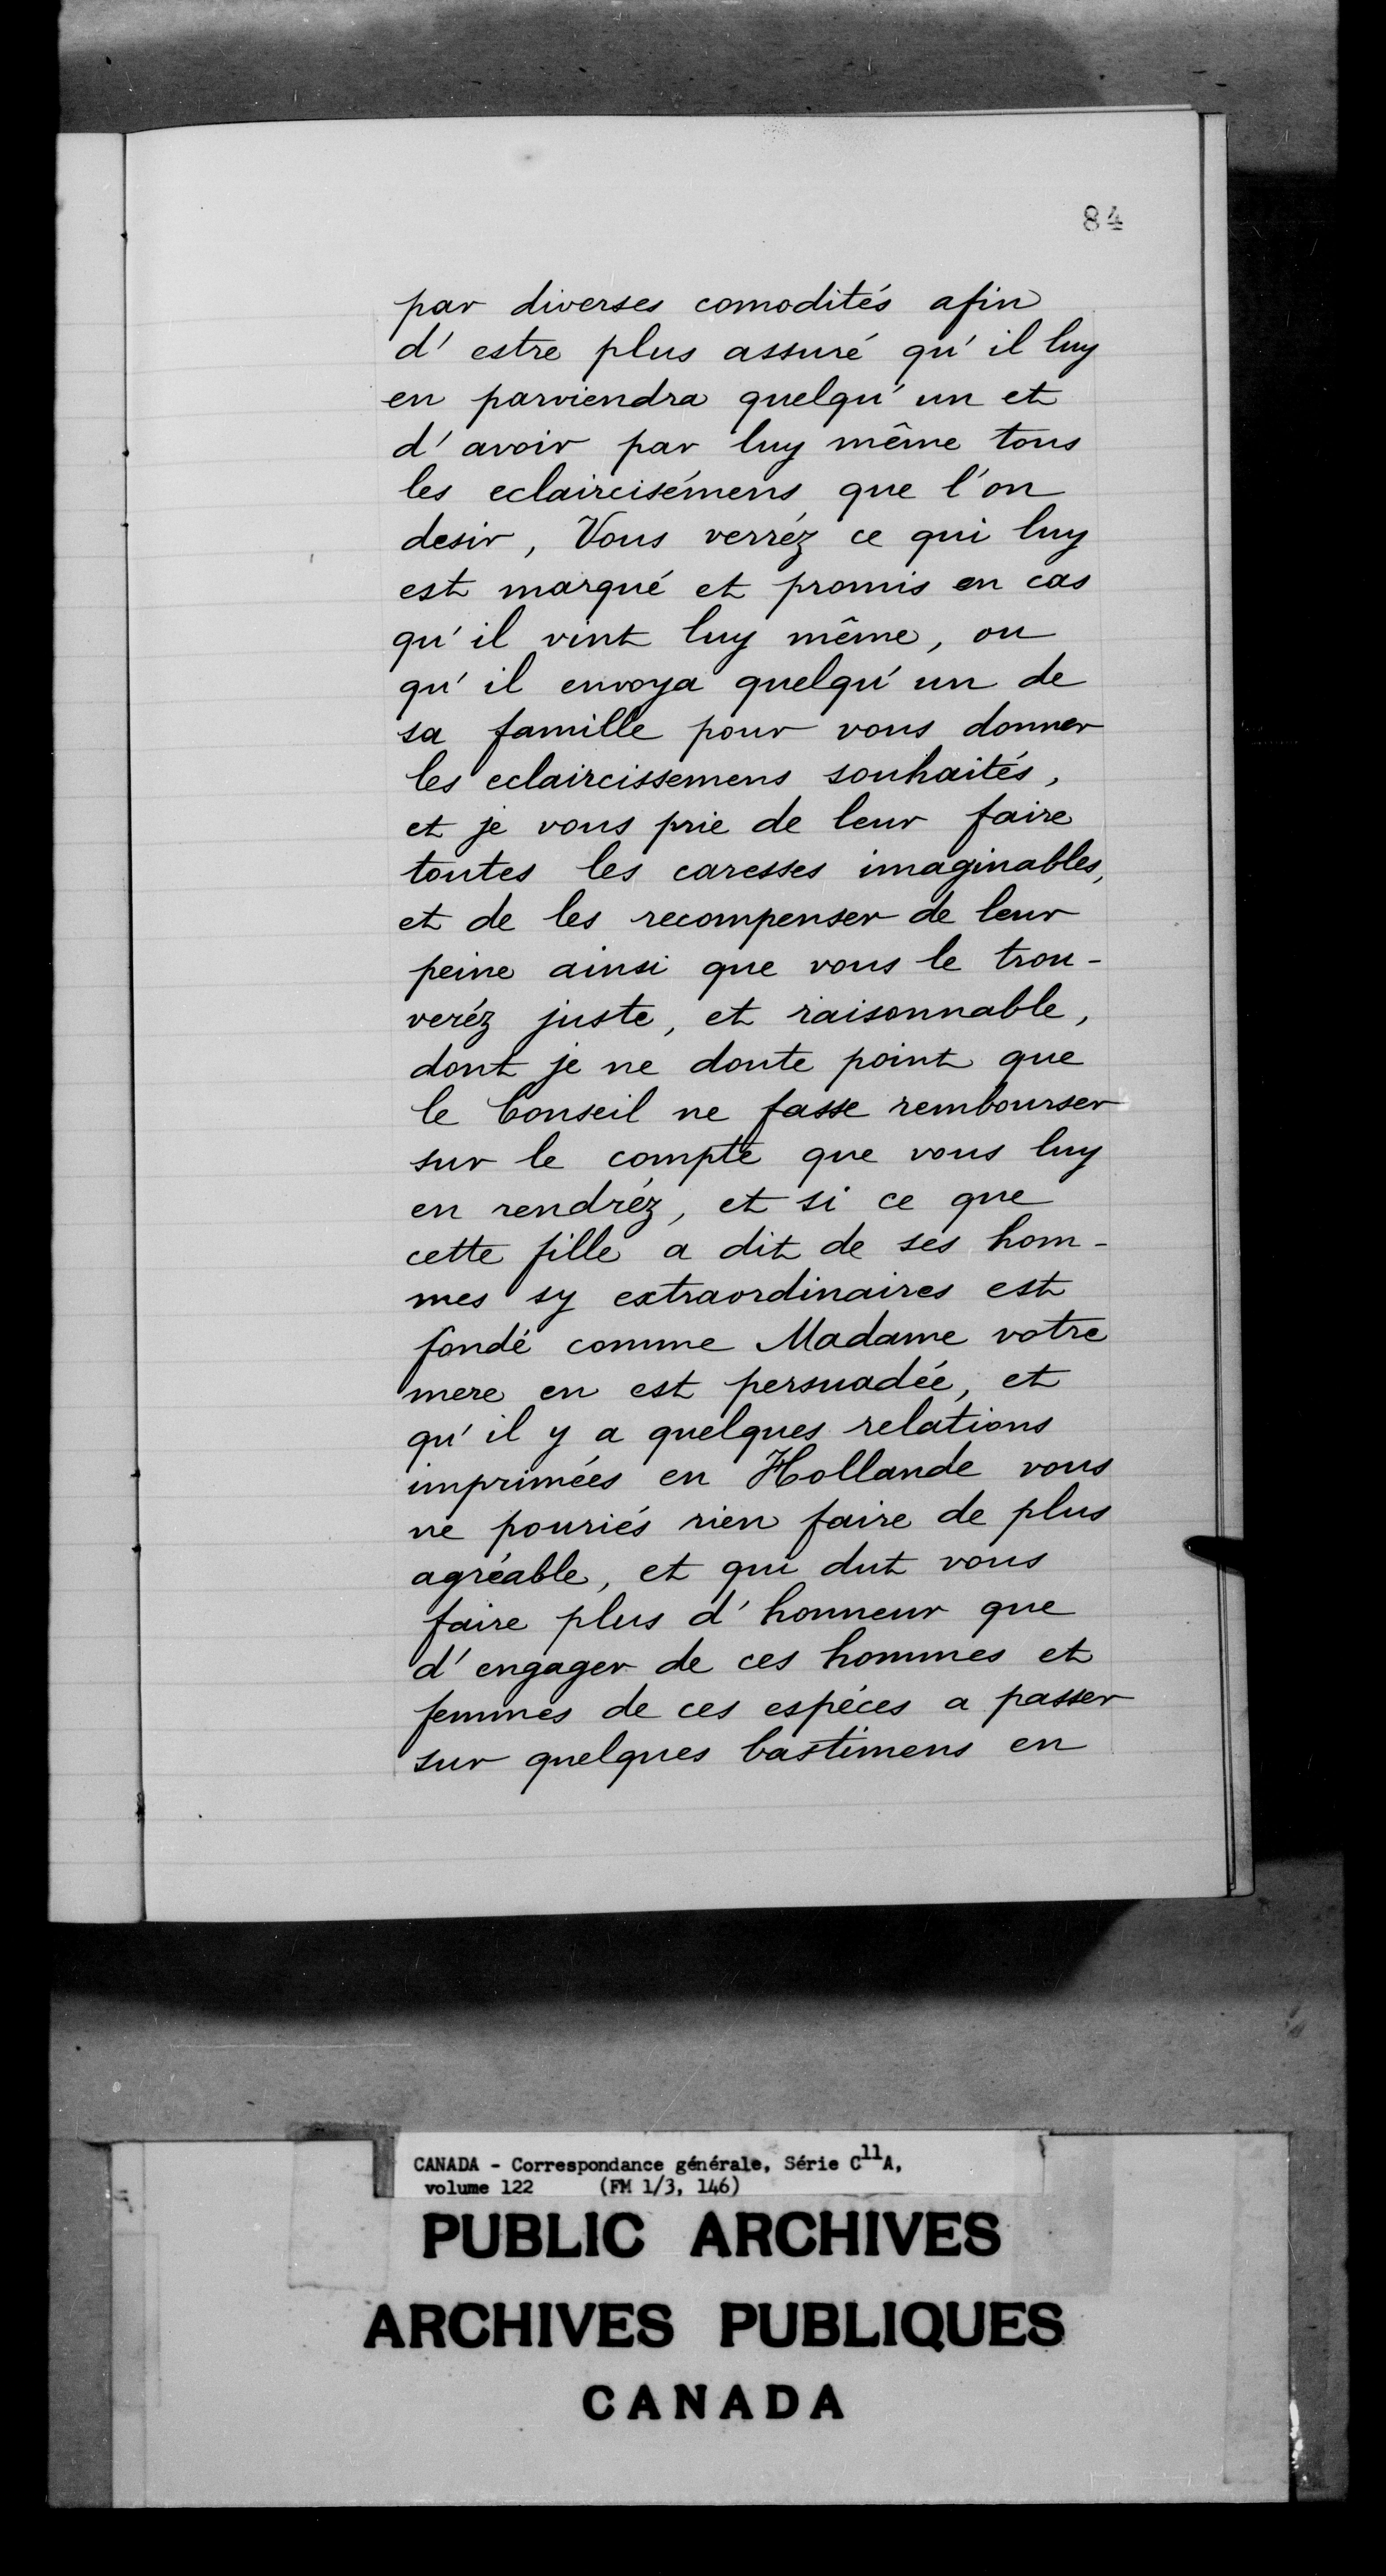 84
par diverses comodités afin
d' estre plus assuré qu' il luy
en parviendra quelqu' un et
d' avoir par luy même tous
les eclaircisémens que l'on
desir, Vous verréz ce qui luy
est marqué et promis en cas
qu' il vint luy même, ou
qu' il envoya quelqu' un de
sa famille pour vous donner
les eclaircissemens souhaités,
et je vous prie de leur faire
toutes les caresses imaginables,
et de les recompenser de leur
peine ainsi que vous le trou-
veréz juste, et raisonnable,
dont je ne doute point que
le Conseil ne fasse rembourser
sur le compte que vous luy
en rendréz, et si ce que
cette fille a dit de ses hom-
mes sy extraordinaires est
fondé comme Madame votre
mere en est persuadée, et
qu' il y a quelques relations
imprimées en Hollande vous
ne pouriés rien faire de plus
agréable, et qui dut vous
faire plus d' honneur que
d' engager de ces hommes et
femmes de ces espéces a passer
sur quelques bastimens en
CANADA - Correspondance générale, Série C11A,
volume 122 (FM 1/3, 146)
PUBLIC ARCHIVES
ARCHIVES PUBLIQUES
CANADA